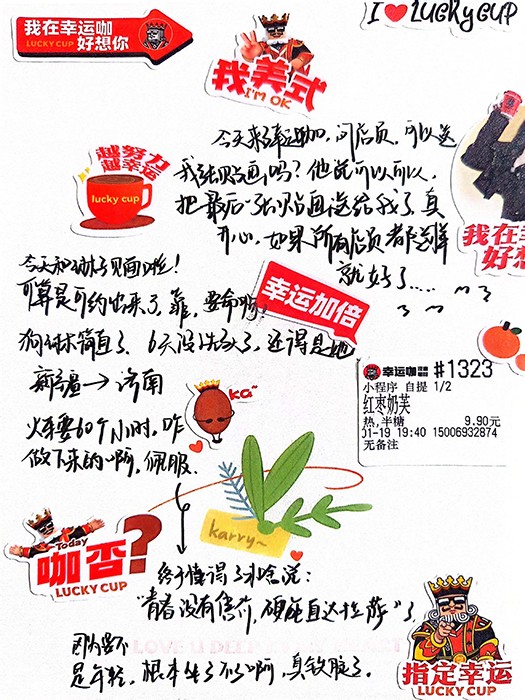 我在幸运咖
LUCKY CUP 好想你
I ❤ LUCKY CUP
我美式
I'M OK
越努力
越幸运
lucky cup
今天来幸运咖,问店员,可以送
我张贴画吗?他说可以可以,
把最后一张贴画送给我了,真
开心,如果所有店员都这样
就好了.....
我在幸
好想
今天和 见面啦!
可算是可约出来了,靠,要命啊!
幸运加倍
简直了,6天没洗头了,还得是她
新疆→济南
火车要60个小时,咋
做下来的啊,佩服.
幸运咖 #1323
小程序 自提 1/2
红枣奶芙
热,半糖 9.90元
01-19 19:40 15006932874
无备注
KA~
karry~
Today
咖否?
LUCKY CUP
终于懂得了 啥说:
"青春没有售价,硬座直达拉萨"了
因为要不
是年轻,根本坐不了啊,真软服了.
指定幸运
LUCKY CUP